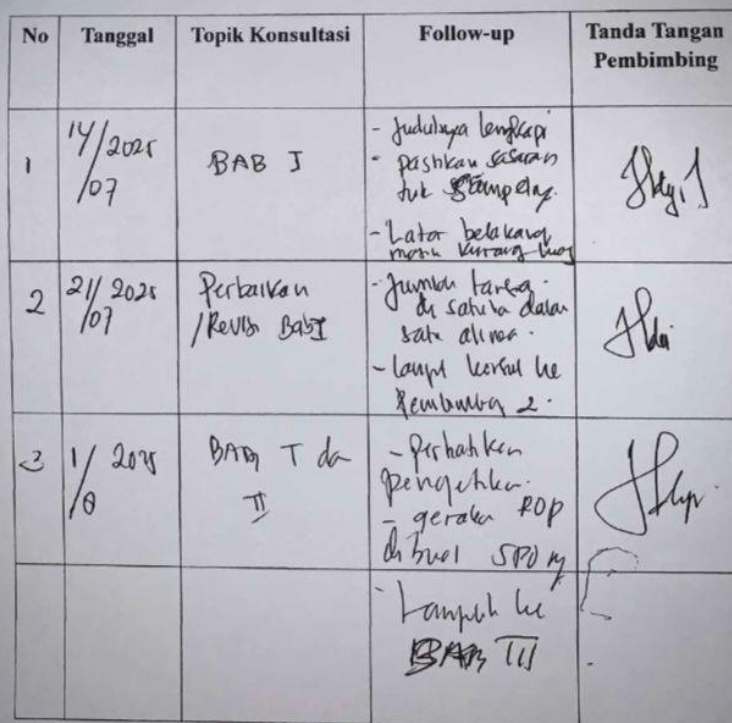 No Tanggal Topik Konsultasi Follow-up Tanda Tangan Pembimbing
1 14/2025
/07
BAB I
- Judulnya lengkapi
- pastikan sasaran
- Latar belakang
masih kurang
2 21/2025
/07
Perbaikan
/Revisi Bab I
- Jumlah
satu alinea.
- lanjut konsul ke
Pembimbing 2.
3 1/2025
/8
BAB I da
II
- Perhatikan
pengetikan.
- gerakan ROP
dibuat SPO
- Lanjut ke
BAB III